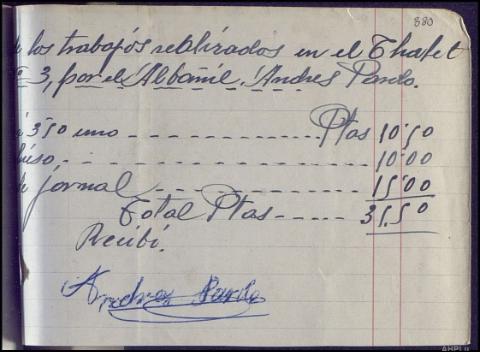 880
los trabajos realizados en el Chalet
3, por el Albañil, Andres Pardo.
a 3'50 uno Ptas 10'50
10'00
jornal 15'00
Total Ptas 35,50
Recibí.
Andres Pardo